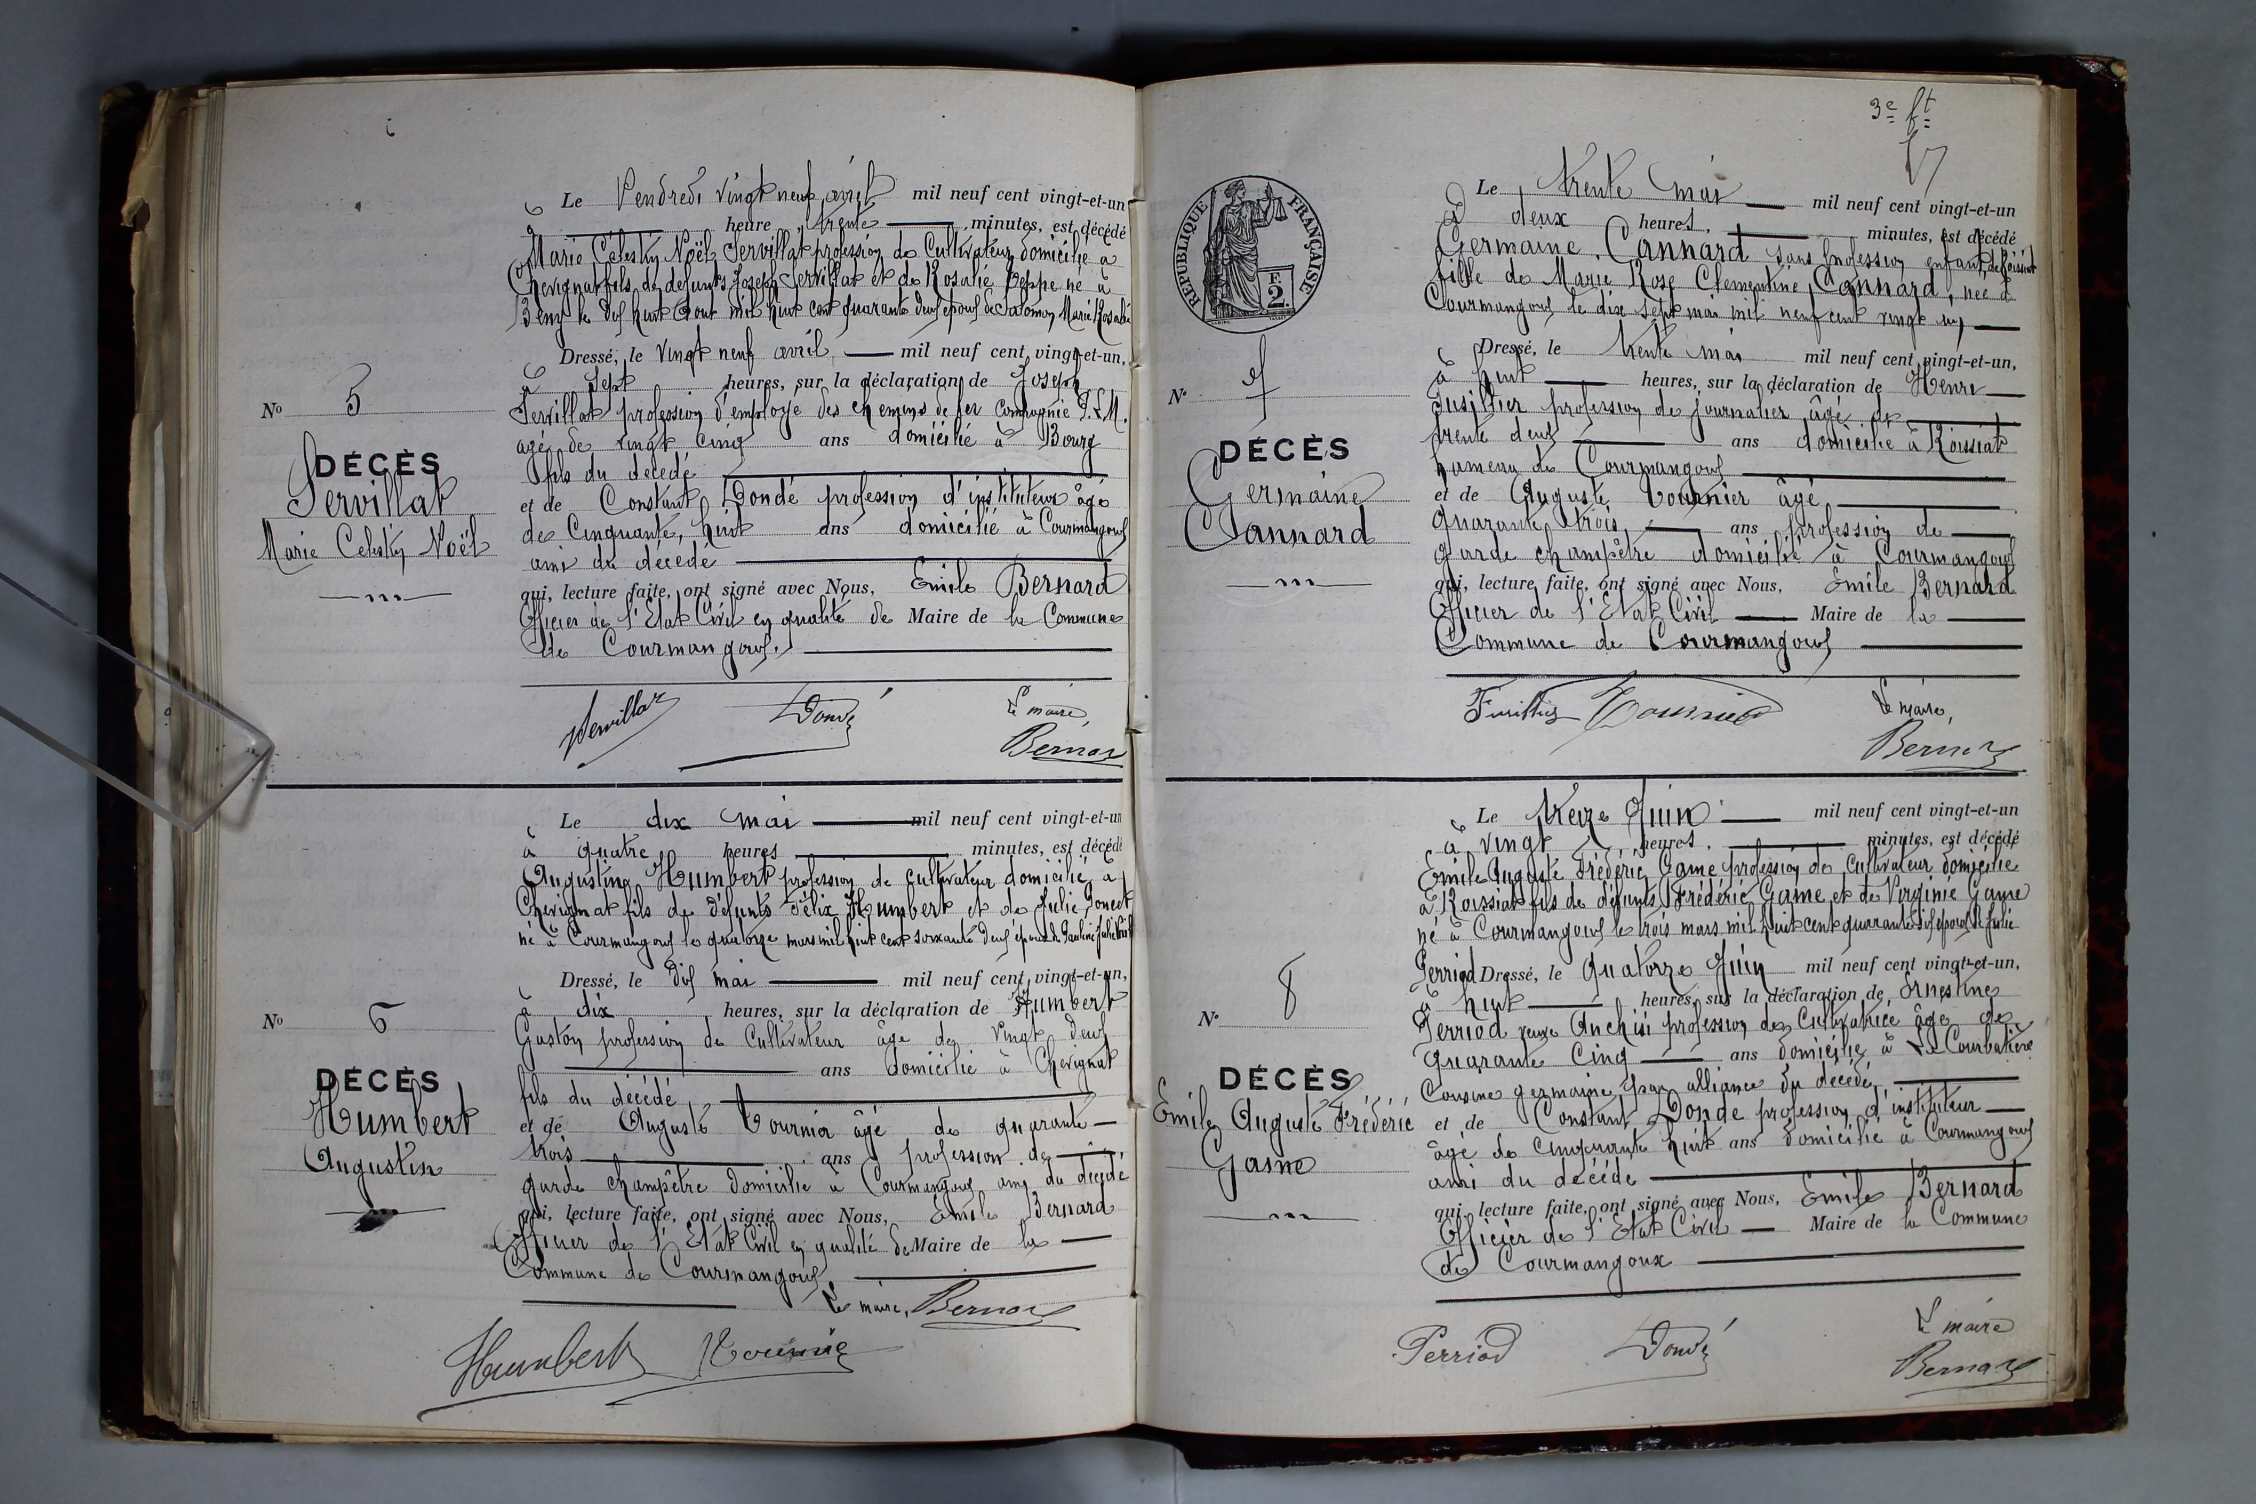 Le Vendredi vingt neuf avril mil neuf cent vingt-et-un
à heure trente minutes, est décédé
Marie Célestin Noël Servillat profession de Cultivateur domicilié à
Chevignat fils de défunts Joseph Servillat et de Rosalie né à
Bény le dix huit Août mil huit cent quarante deux époux de Salomon Marie Rosalie
Dressé, le vingt neuf avril mil neuf cent vingt-et-un,
à sept heures, sur la déclaration de Joseph
Servillat profession d'employé des chemins de fer Compagnie P.L.M.
âgé de vingt cinq ans domicilié à Bourg
fils du décédé
et de Constant Dondé profession d'instituteur âgé
de Cinquante huit ans domicilié à Courmangoux
ami du décédé
qui, lecture faite, ont signé avec Nous, Emile Bernard
Officier de l'Etat Civil en qualité de Maire de la Commune
de Courmangoux.
Nº 5
DÉCÈS
Servillat
Marie Célestin Noël
Servillat Dondé Le maire,
Bernard
Le dix mai mil neuf cent vingt-et-un
à quatre heures minutes, est décédé
Augustin Humbert profession de cultivateur domicilié à
Chevignat fils de défunts Félix Humbert et de Julie
né à Courmangoux le quatorze mars mil huit cent soixante deux époux de Pauline Julie
Dressé, le dix mai mil neuf cent vingt-et-un,
à dix heures, sur la déclaration de Humbert
Gaston profession de Cultivateur âgé de vingt deux
ans domicilié à Chevignat
fils du décédé
et de Auguste Tournier âgé de quarante
trois ans profession de
garde champêtre domicilié à Courmangoux ami du décédé
qui, lecture faite, ont signé avec Nous, Emile Bernard
Officier de l'Etat Civil en qualité de Maire de la
Commune de Courmangoux.
Nº 6
DÉCÈS
Humbert
Augustin
Le maire, Bernard
Humbert Tournier
3e ft
RÉPUBLIQUE FRANÇAISE
F. 2.
Le trente mai mil neuf cent vingt-et-un
à deux heures, minutes, est décédé
Germaine Cannard sans profession enfant de Roissiat
fille de Marie Rose Clementine Cannard, née à
Courmangoux le dix sept mai mil neuf cent vingt un
Dressé, le trente mai mil neuf cent vingt-et-un,
à huit heures, sur la déclaration de Henri
Fusillier profession de journalier âgé de
trente deux ans domicilié à Roissiat
hameau de Courmangoux
et de Auguste Tournier âgé
quarante trois ans profession de
garde champêtre domicilié à Courmangoux
qui, lecture faite, ont signé avec Nous, Emile Bernard
Officier de l'Etat Civil Maire de la
Commune de Courmangoux
Nº 7
DÉCÈS
Germaine
Cannard
Tournier Le maire,
Bernard
Le treize Juin mil neuf cent vingt-et-un
à vingt heures, minutes, est décédé
Emile Auguste Frédéric Game profession de Cultivateur domicilié
à Roissiat fils de défunts Frédéric Game et de Virginie Game
né à Courmangoux le trois mars mil huit cent quarante six époux de Julie
Perriod Dressé, le quatorze Juin mil neuf cent vingt-et-un,
à huit heures, sur la déclaration de Ernestine
Perriod veuve Anchisi profession de Cultivatrice âgée de
quarante cinq ans domiciliée à La Courbatière
Cousine germaine par alliance du décédé
et de Constant Dondé profession d'instituteur
âgé de cinquante huit ans domicilié à Courmangoux
ami du décédé
qui, lecture faite, ont signé avec Nous, Emile Bernard
Officier de l'Etat Civil Maire de la Commune
de Courmangoux
Nº 8
DÉCÈS
Emile Auguste Frédéric
Game
Perriod Dondé Le maire
Bernard